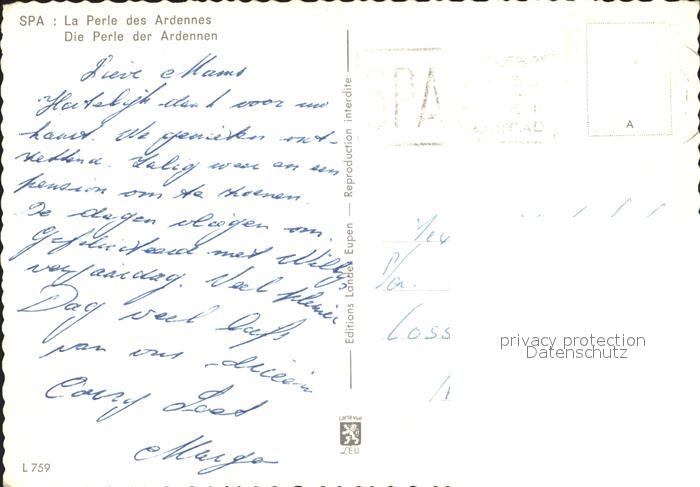 SPA : La Perle des Ardennes
Die Perle der Ardennen
Lieve Mams
Hartelijk dank voor uw
kaart. We genieten ont-
zettend. Zalig weer en een
pension om te zoenen.
De dagen vliegen om.
Gefeliciteerd met Willy's
verjaardag. Veel plezier
Dag veel liefs
van ons
Corry Loes
Margo
L 759
Editions Lander Eupen — Reproduction interdite
LEU
SPA
A
P/a.
Loss
privacy protection
Datenschutz